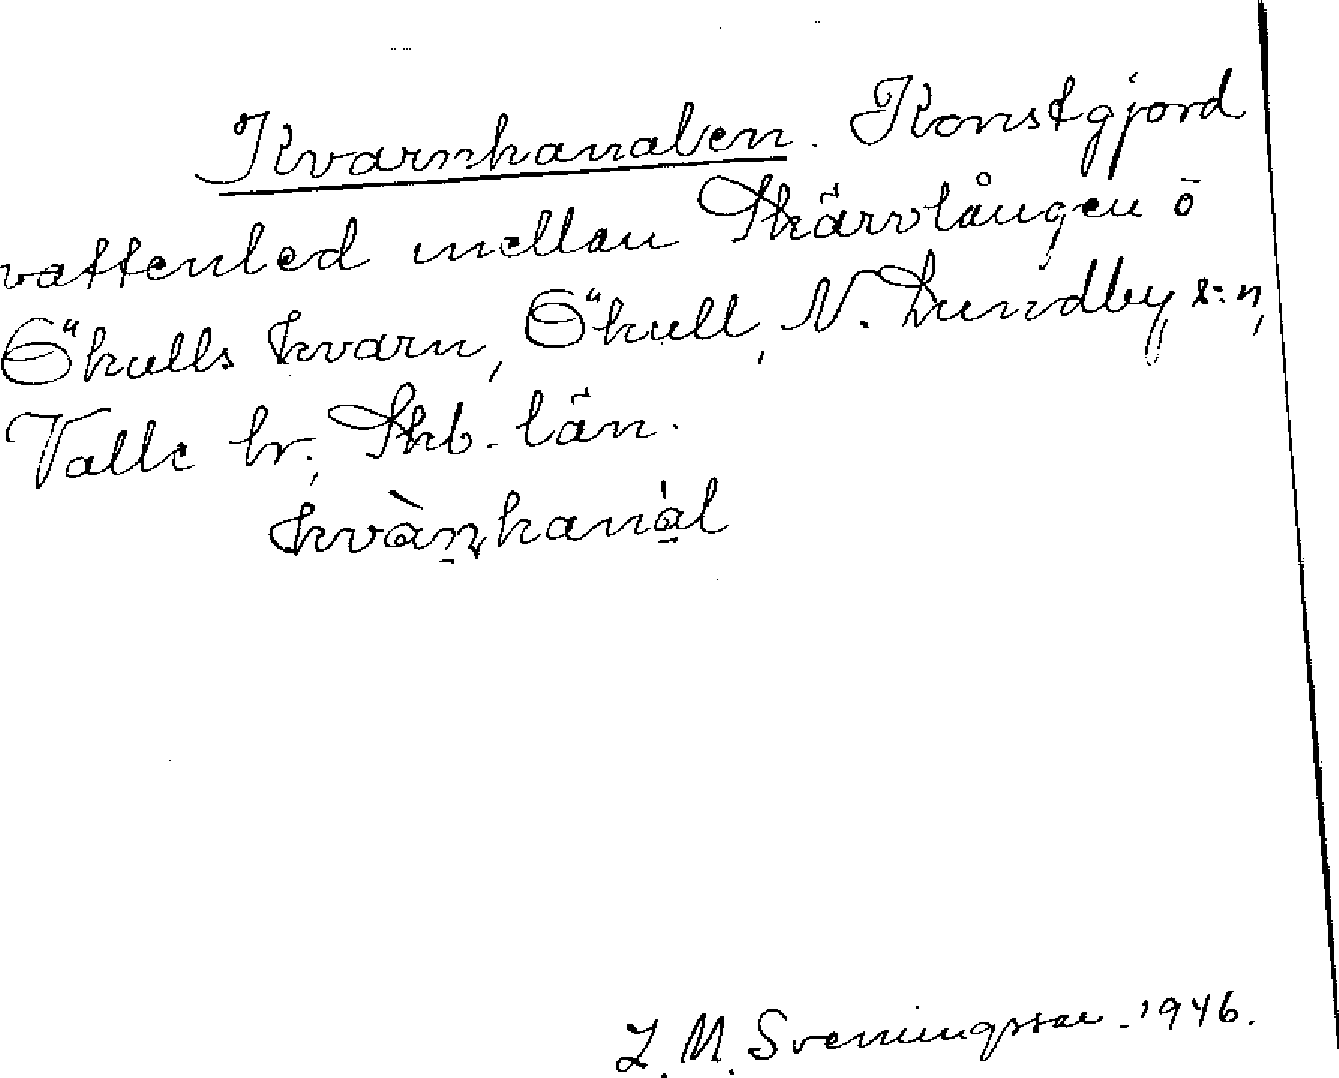 Kvarnkanalen. Konstgjord
vattenled mellan Skärvlången o
Ökulls kvarn, Ökull, N. Lundby s:n,
Valle hr., Skb. län.
kvàṇkanál
L. M. Svenningsson. 1946.